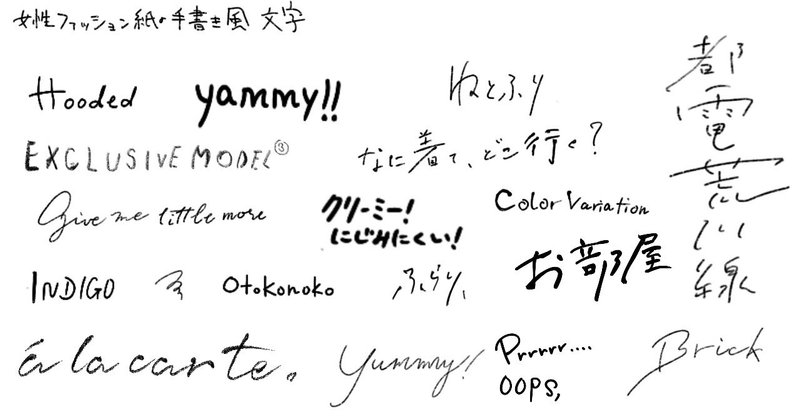 女性ファッション紙の手書き風 文字
Hooded
yammy!!
ねとふり
EXCLUSIVE MODEL③
なに着て、どこ行く?
Give me little more
クリーミー!
にじみにくい!
Color Variation
都電荒川線
INDIGO
Otokonoko
ふらり、
お部屋
á la carte。
Yummy!!
Prrrrrr....
OOPS,
Brick